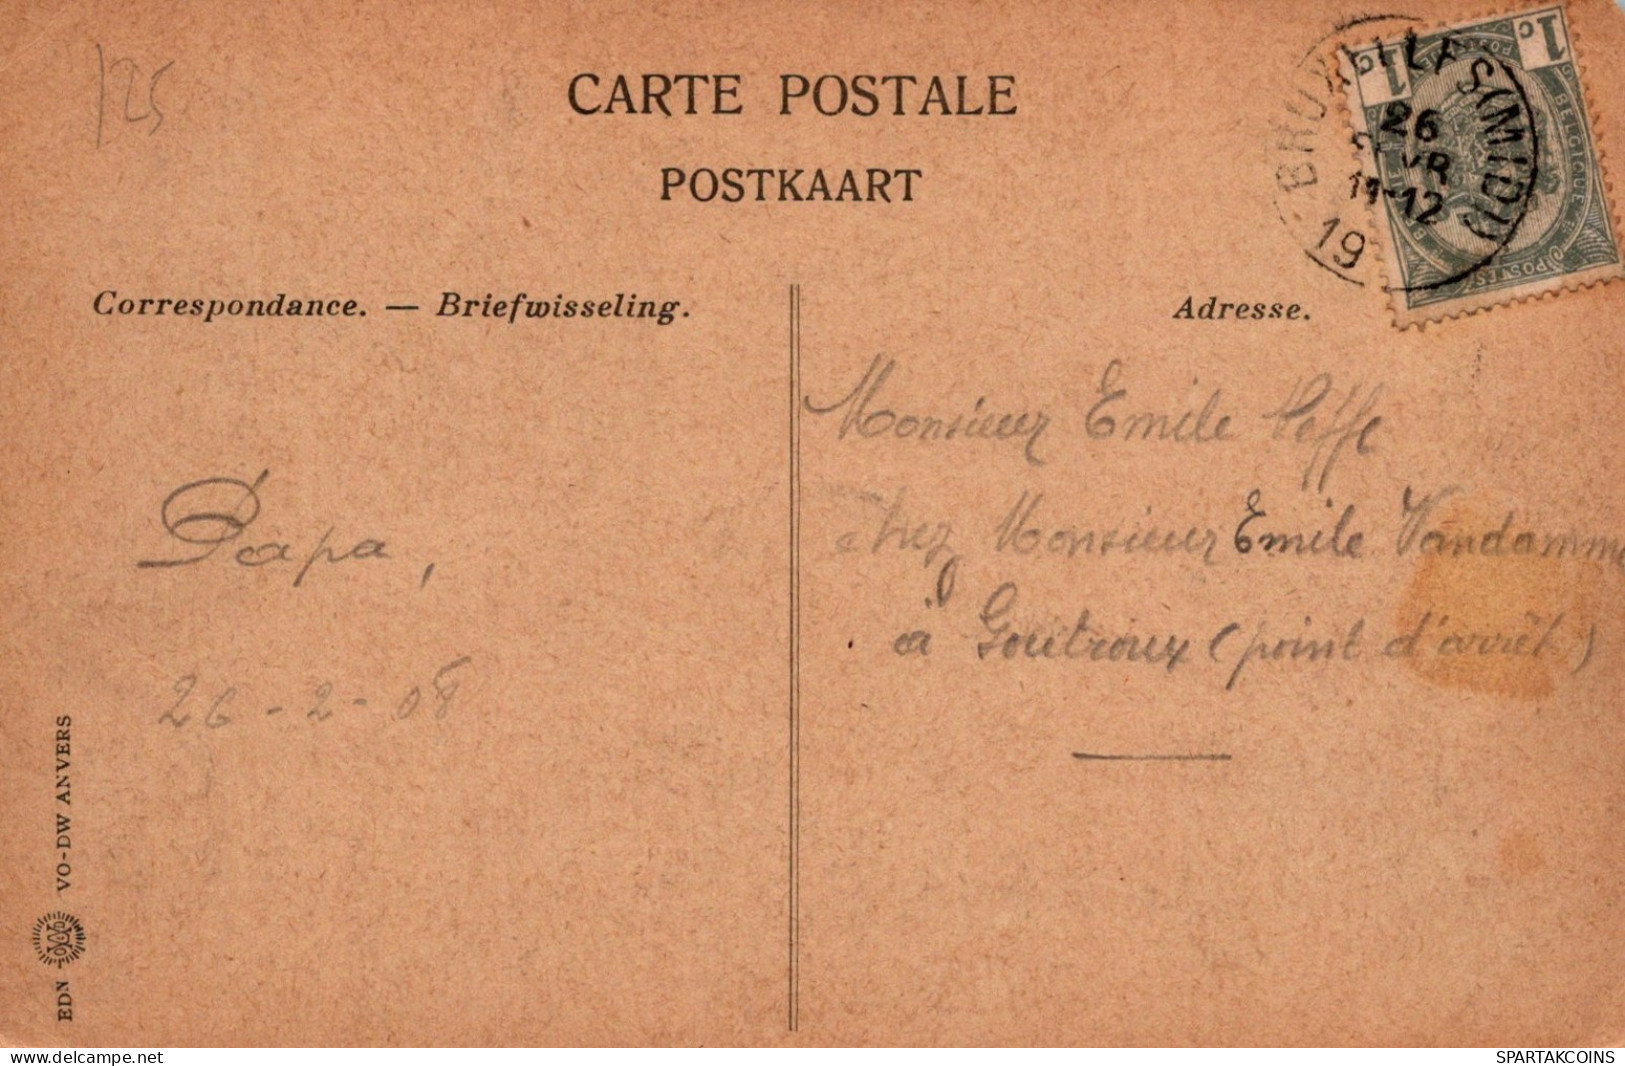 125
CARTE POSTALE
POSTKAART
1c 1c
BELGIQUE
POSTES
BRUXELLES (MIDI)
26
VR
11-12
19
Correspondance. — Briefwisseling.
Adresse.
Papa,
26 - 2 - 08
Monsieur Emile
chez Monsieur Emile Vandamme
à Goutroux (point d'arrêt)
EDN VO-DW ANVERS
www.delcampe.net
SPARTAKCOINS